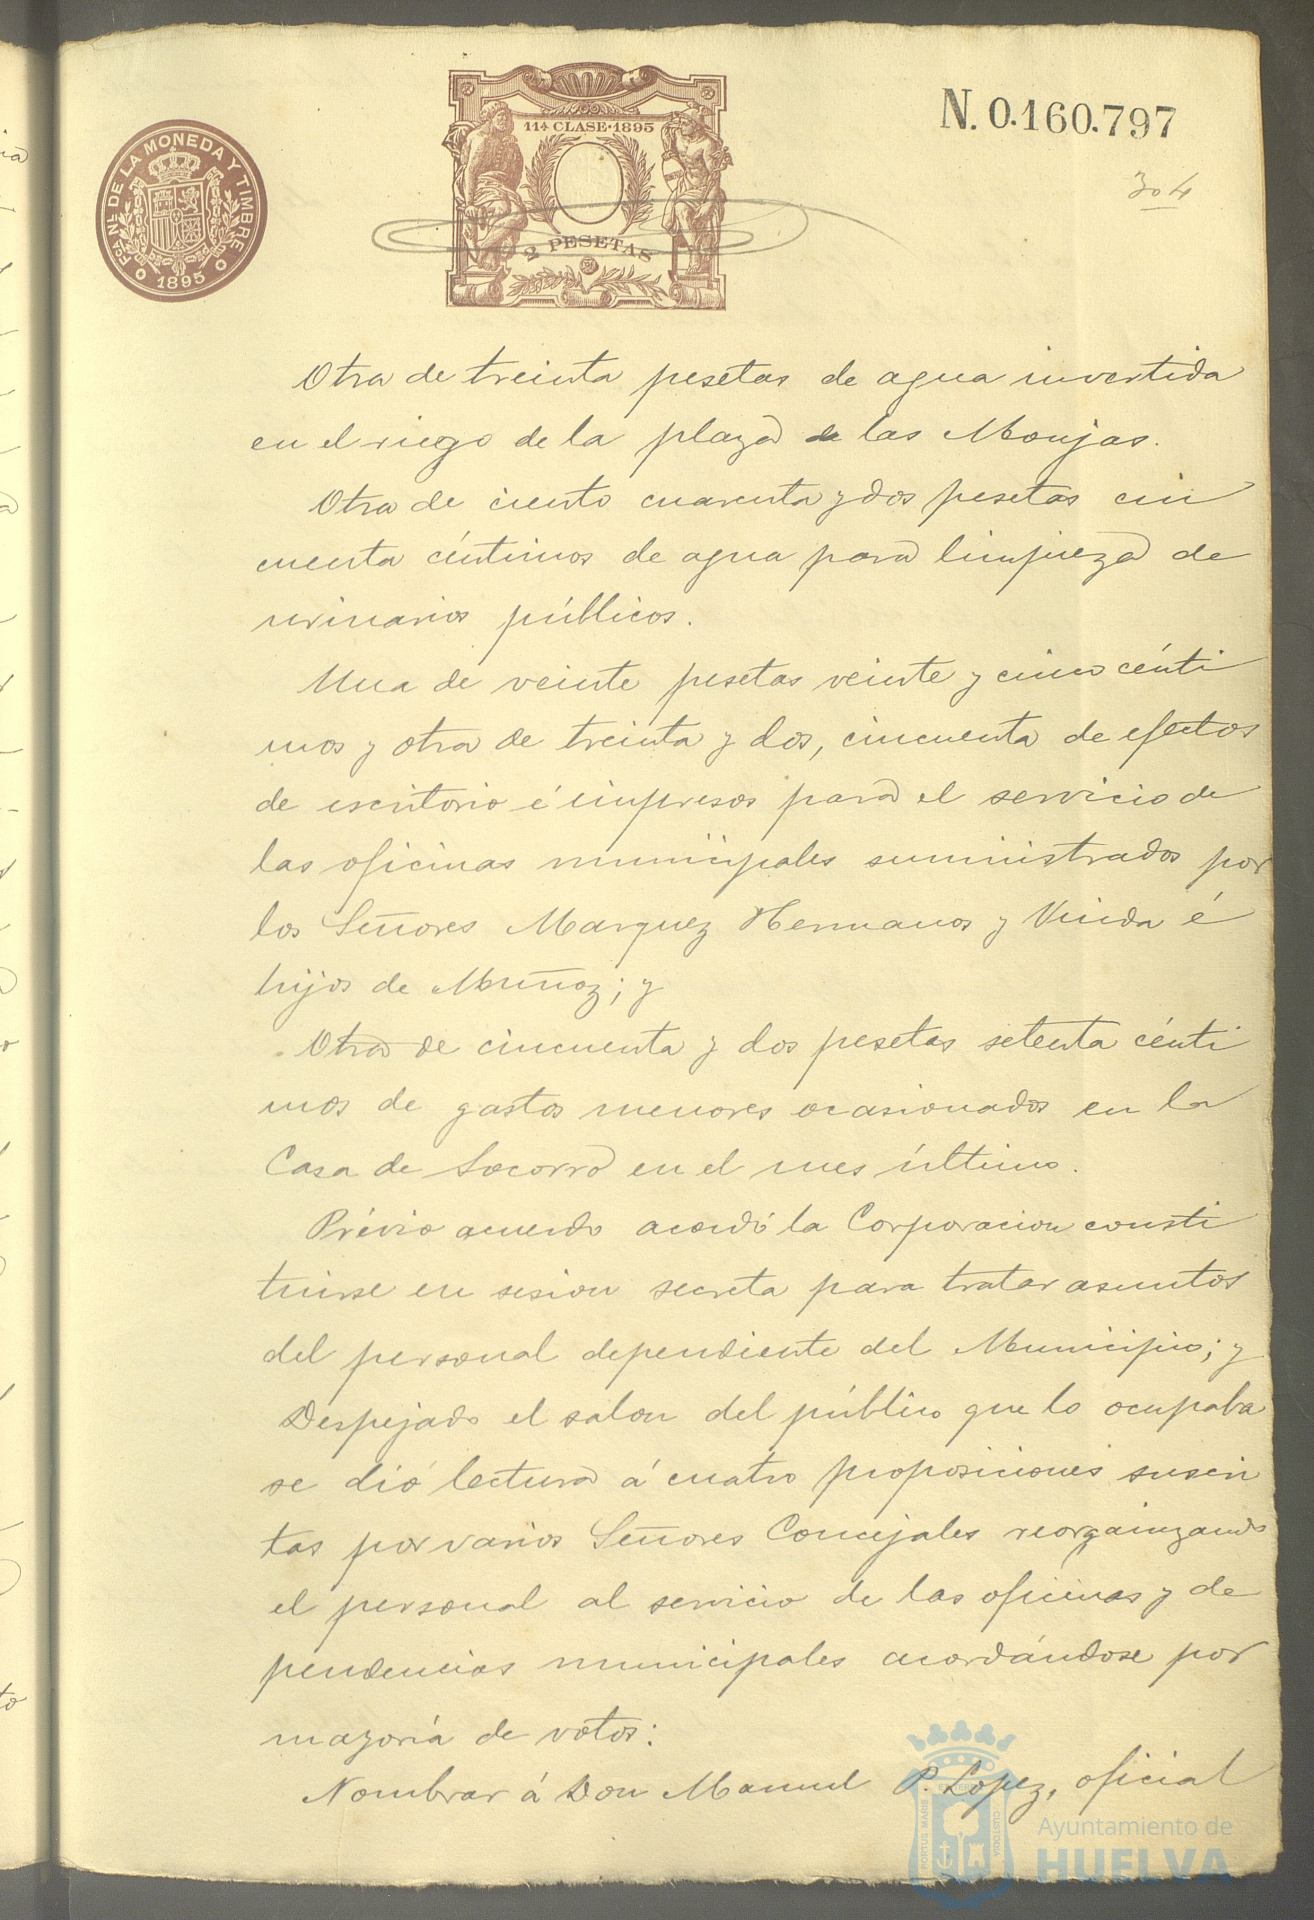 FCA. NL. DE LA MONEDA Y TIMBRE
1895
11ª CLASE·1895
2 PESETAS
N. 0.160.797
304
Otra de treinta pesetas de agua invertida
en el riego de la plaza de las Monjas.
Otra de ciento cuarenta y dos pesetas cin
cuenta céntimos de agua para limpieza de
urinarios públicos.
Una de veinte pesetas veinte y cinco cénti
mos y otra de treinta y dos, cincuenta de efectos
de escritorio é impresos para el servicio de
las oficinas municipales suministrados por
los Señores Marquez Hermanos y Viuda é
hijos de Muñoz; y
Otra de cincuenta y dos pesetas setenta cénti
mos de gastos menores ocasionados en la
Casa de Socorro en el mes último.
Prévio acuerdo acordó la Corporacion consti
tuirse en sesion secreta para tratar asuntos
del personal dependiente del Municipio; y
Despejado el salon del público que lo ocupaba
se dió lectura á cuatro proposiciones suscri
tas por varios Señores Concejales reorganizando
el personal al servicio de las oficinas y de
pendencias municipales acordándose por
mayoría de votos:
Nombrar á Don Manuel P. Lopez, oficial
PORTUS MARIS
ET TERRE
CUSTODIA
Ayuntamiento de
HUELVA